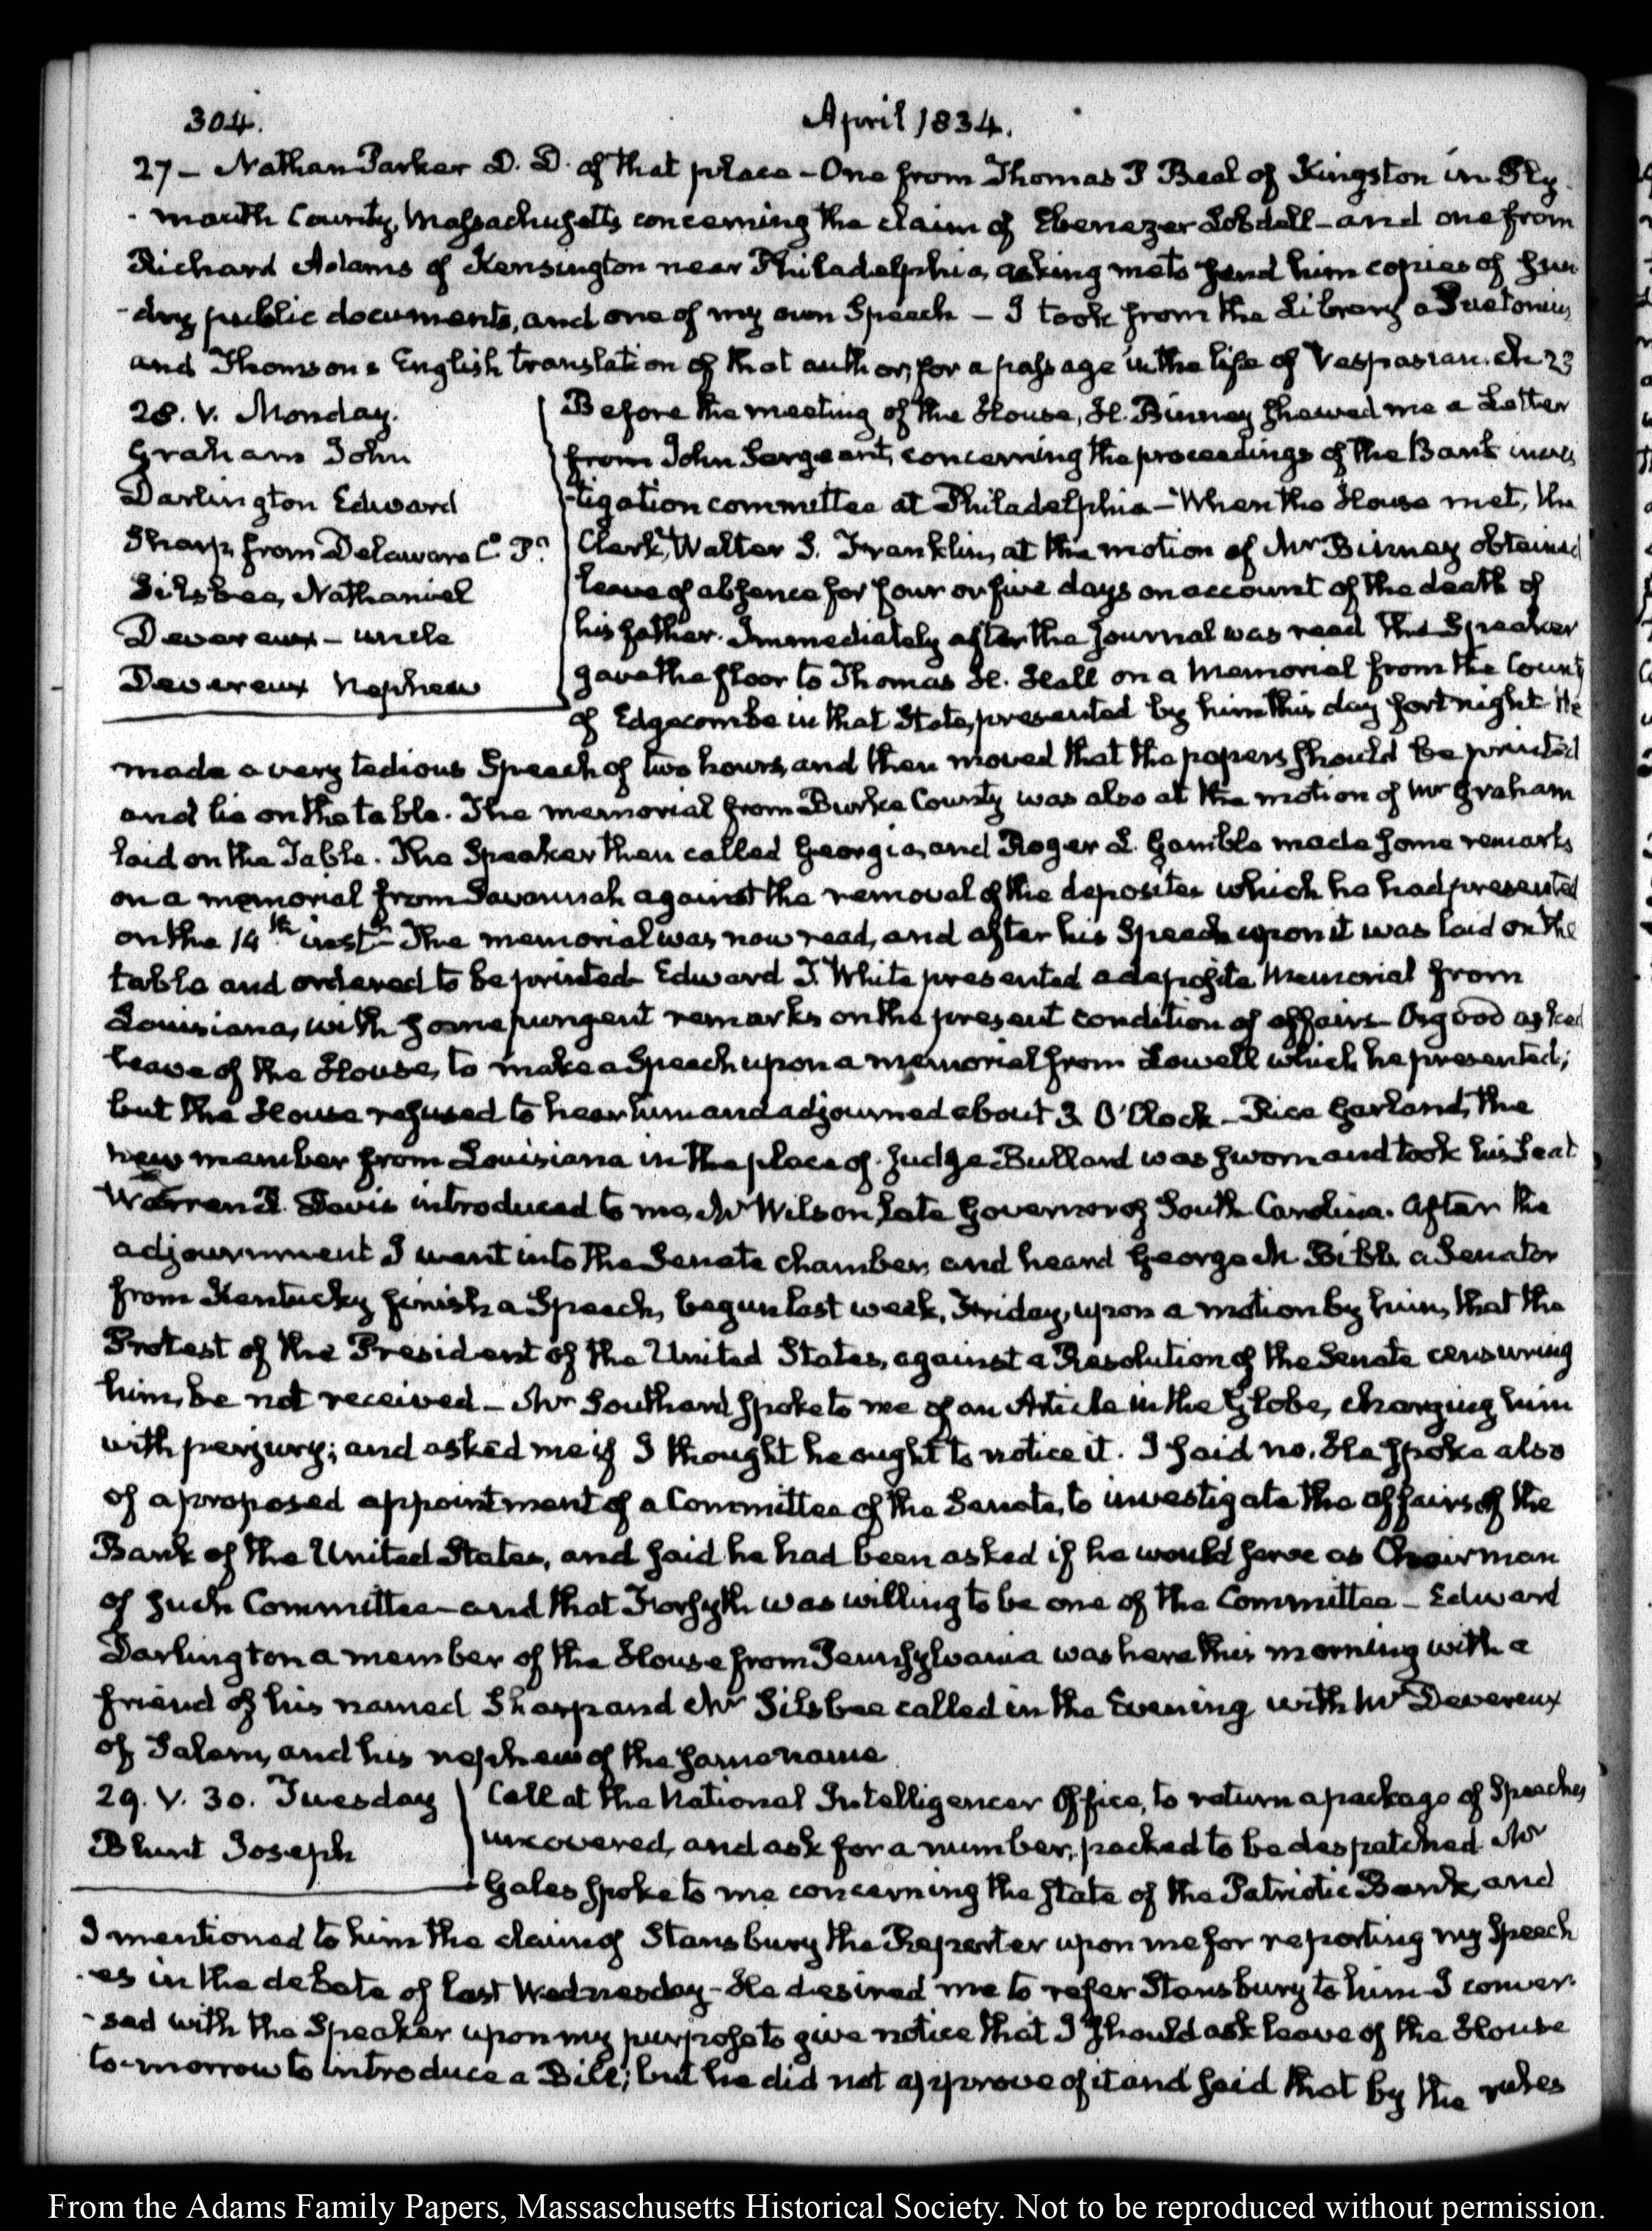 304.
April 1834.
27 – Nathan Parker D. D. of that place – One from Thomas P Beal of Kingston in Ply
- mouth County, Massachusetts concerning the claim of Ebenezer Lobdell – and one from
Richard Adams of Kensington near Philadelphia, asking me to send him copies of sun
- dry public documents, and one of my own Speech – I took from the Library a Suetonius,
and Thomson's English translation of that author, for a passage in the life of Vespasian. ch 23
28. V. Monday.
Graham John
Darlington Edward
Sharp from Delaware Co. Pa.
Silsbee, Nathaniel
Devereux – uncle
Devereux Nephew
Before the meeting of the House, H. Binney shewed me a Letter
from John Sergeant, concerning the proceedings of the Bank inves
-tigation committee at Philadelphia – When the House met, the
Clerk, Walter S. Franklin, at the motion of Mr Binney obtained
leave of absence for four or five days on account of the death of
his father. Immediately after the Journal was read the Speaker
gave the floor to Thomas H. Hall on a Memorial from the County
of Edgecombe in that State, presented by him this day fortnight. He
made a very tedious Speech of two hours, and then moved that the papers should be printed
and lie on the table. The memorial from Burke County was also at the motion of Mr Graham
laid on the Table. The Speaker then called Georgia, and Roger L. Gamble made some remarks
on a memorial from Savannah against the removal of the deposites which he had presented
on the 14th inst. – The memorial was now read, and after his Speech upon it was laid on the
table and ordered to be printed – Edward D. White presented a deposite Memorial from
Louisiana, with some pungent remarks on the present condition of affairs – Osgood asked
leave of the House, to make a Speech upon a memorial from Lowell which he presented;
but the House refused to hear him and adjourned about 3 O'Clock – Rice Garland, the
new member from Louisiana in the place of Judge Bullard was sworn and took his seat
Warren R. Davis introduced to me, Mr Wilson late Governor of South Carolina. After the
adjournment I went into the Senate chamber, and heard George M Bibb, a Senator
from Kentucky finish a Speech, begun last week, Friday, upon a motion by him, that the
Protest of the President of the United States, against a Resolution of the Senate censuring
him, be not received – Mr Southard spoke to me of an Article in the Globe, charging him
with perjury; and asked me if I thought he ought to notice it. I said no. He spoke also
of a proposed appointment of a Committee of the Senate, to investigate the affairs of the
Bank of the United States, and said he had been asked if he would serve as Chairman
of such Committee – and that Forsyth was willing to be one of the Committee – Edward
Darlington a member of the House from Pennsylvania was here this morning with a
friend of his named Sharp and Mr Silsbee called in the Evening with Mr Devereux
of Salem, and his nephew of the same name
29. V. 30. Tuesday
Blunt Joseph
Call at the National Intelligencer Office, to return a package of Speeches
uncovered, and ask for a number, packed to be despatched. Mr
Gales spoke to me concerning the state of the Patriotic Bank, and
I mentioned to him the claim of Stansbury the Reporter upon me for reporting my Speech
-es in the debate of last Wednesday – He desired me to refer Stansbury to him – I conver
- sed with the Speaker upon my purpose to give notice that I should ask leave of the House
to-morrow to introduce a Bill; but he did not approve of it and said that by the rules
From the Adams Family Papers, Massaschusetts Historical Society. Not to be reproduced without permission.